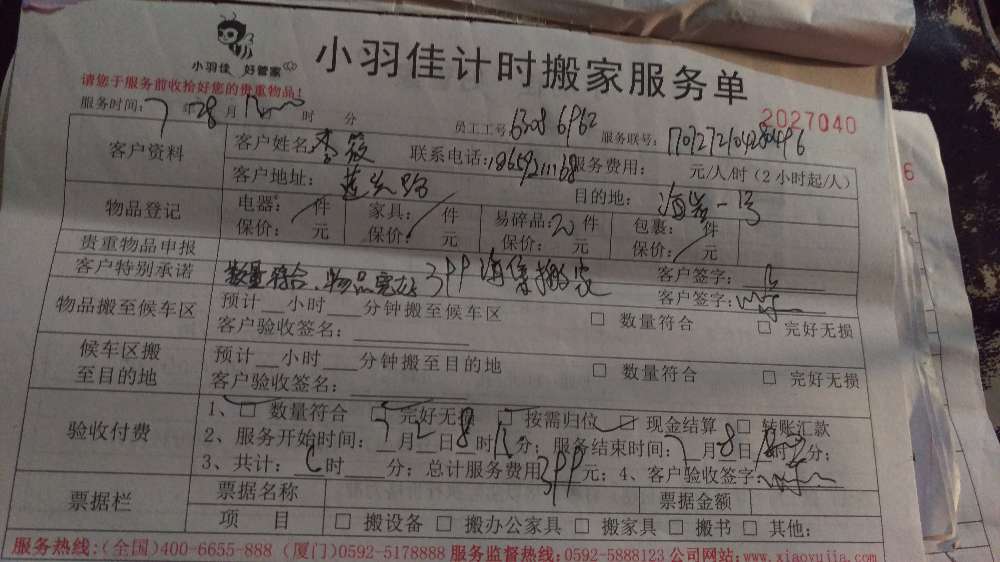 小羽佳 好管家
小羽佳计时搬家服务单
请您于服务前收拾好您的贵重物品！
2027040
服务时间：7年28月 时 分 员工工号 6308 6962 服务联号：
客户资料 客户姓名： 联系电话： 服务费用： 元/人/时（2小时起/人）
客户地址： 目的地：海岸一号
物品登记 电器： 件 家具： 件 易碎品：20件 包裹： 件
保价： 元 保价： 元 保价： 元 保价： 元
贵重物品申报 客户签字：
客户特别承诺 数量符合、物品完好 海集搬家 客户签字：
物品搬至候车区 预计__小时___分钟搬至候车区 □ 数量符合 □ 完好无损
客户验收签名：
候车区搬至目的地 预计__小时___分钟搬至目的地 □ 数量符合 □ 完好无损
客户验收签名：
验收付费 1、□ 数量符合 □ 完好无损 □ 按需归位 □ 现金结算 □ 转账汇款
2、服务开始时间：7月28日 时 分；服务结束时间：7月 日 时 分；
3、共计： 时___分；总计服务费用 元；4、客户验收签字：
票据栏 票据名称 票据金额
项 目 □ 搬设备 □ 搬办公家具 □ 搬家具 □ 搬书 □ 其他：
服务热线：(全国)400-6655-888 (厦门)0592-5178888 服务监督热线：0592-5888123 公司网站：www.xiaoyujia.com